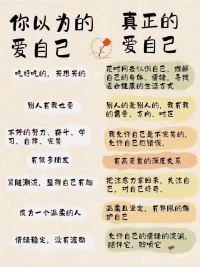 你以为的
爱自己
真正的
爱自己
吃好吃的，买想买的
花时间去认识自己，理解
自己的身体、情绪，寻找
适合健康的生活方式
别人有我也要
别人的是别人的，我有我
的需要、方向、时区
不停的努力、奋斗、学
习、自律、完美
我允许自己是不完美的，
允许自己犯错
有很多朋友
有高质量的深度关系
紧随潮流，显得自己有趣
把注意力拿回来，关注自
己，对自己好奇
成为一个温柔的人
温柔且坚定，有界限的维
护自己
情绪稳定，没有波动
允许自己的情绪的流淌，
陪伴它，聆听它